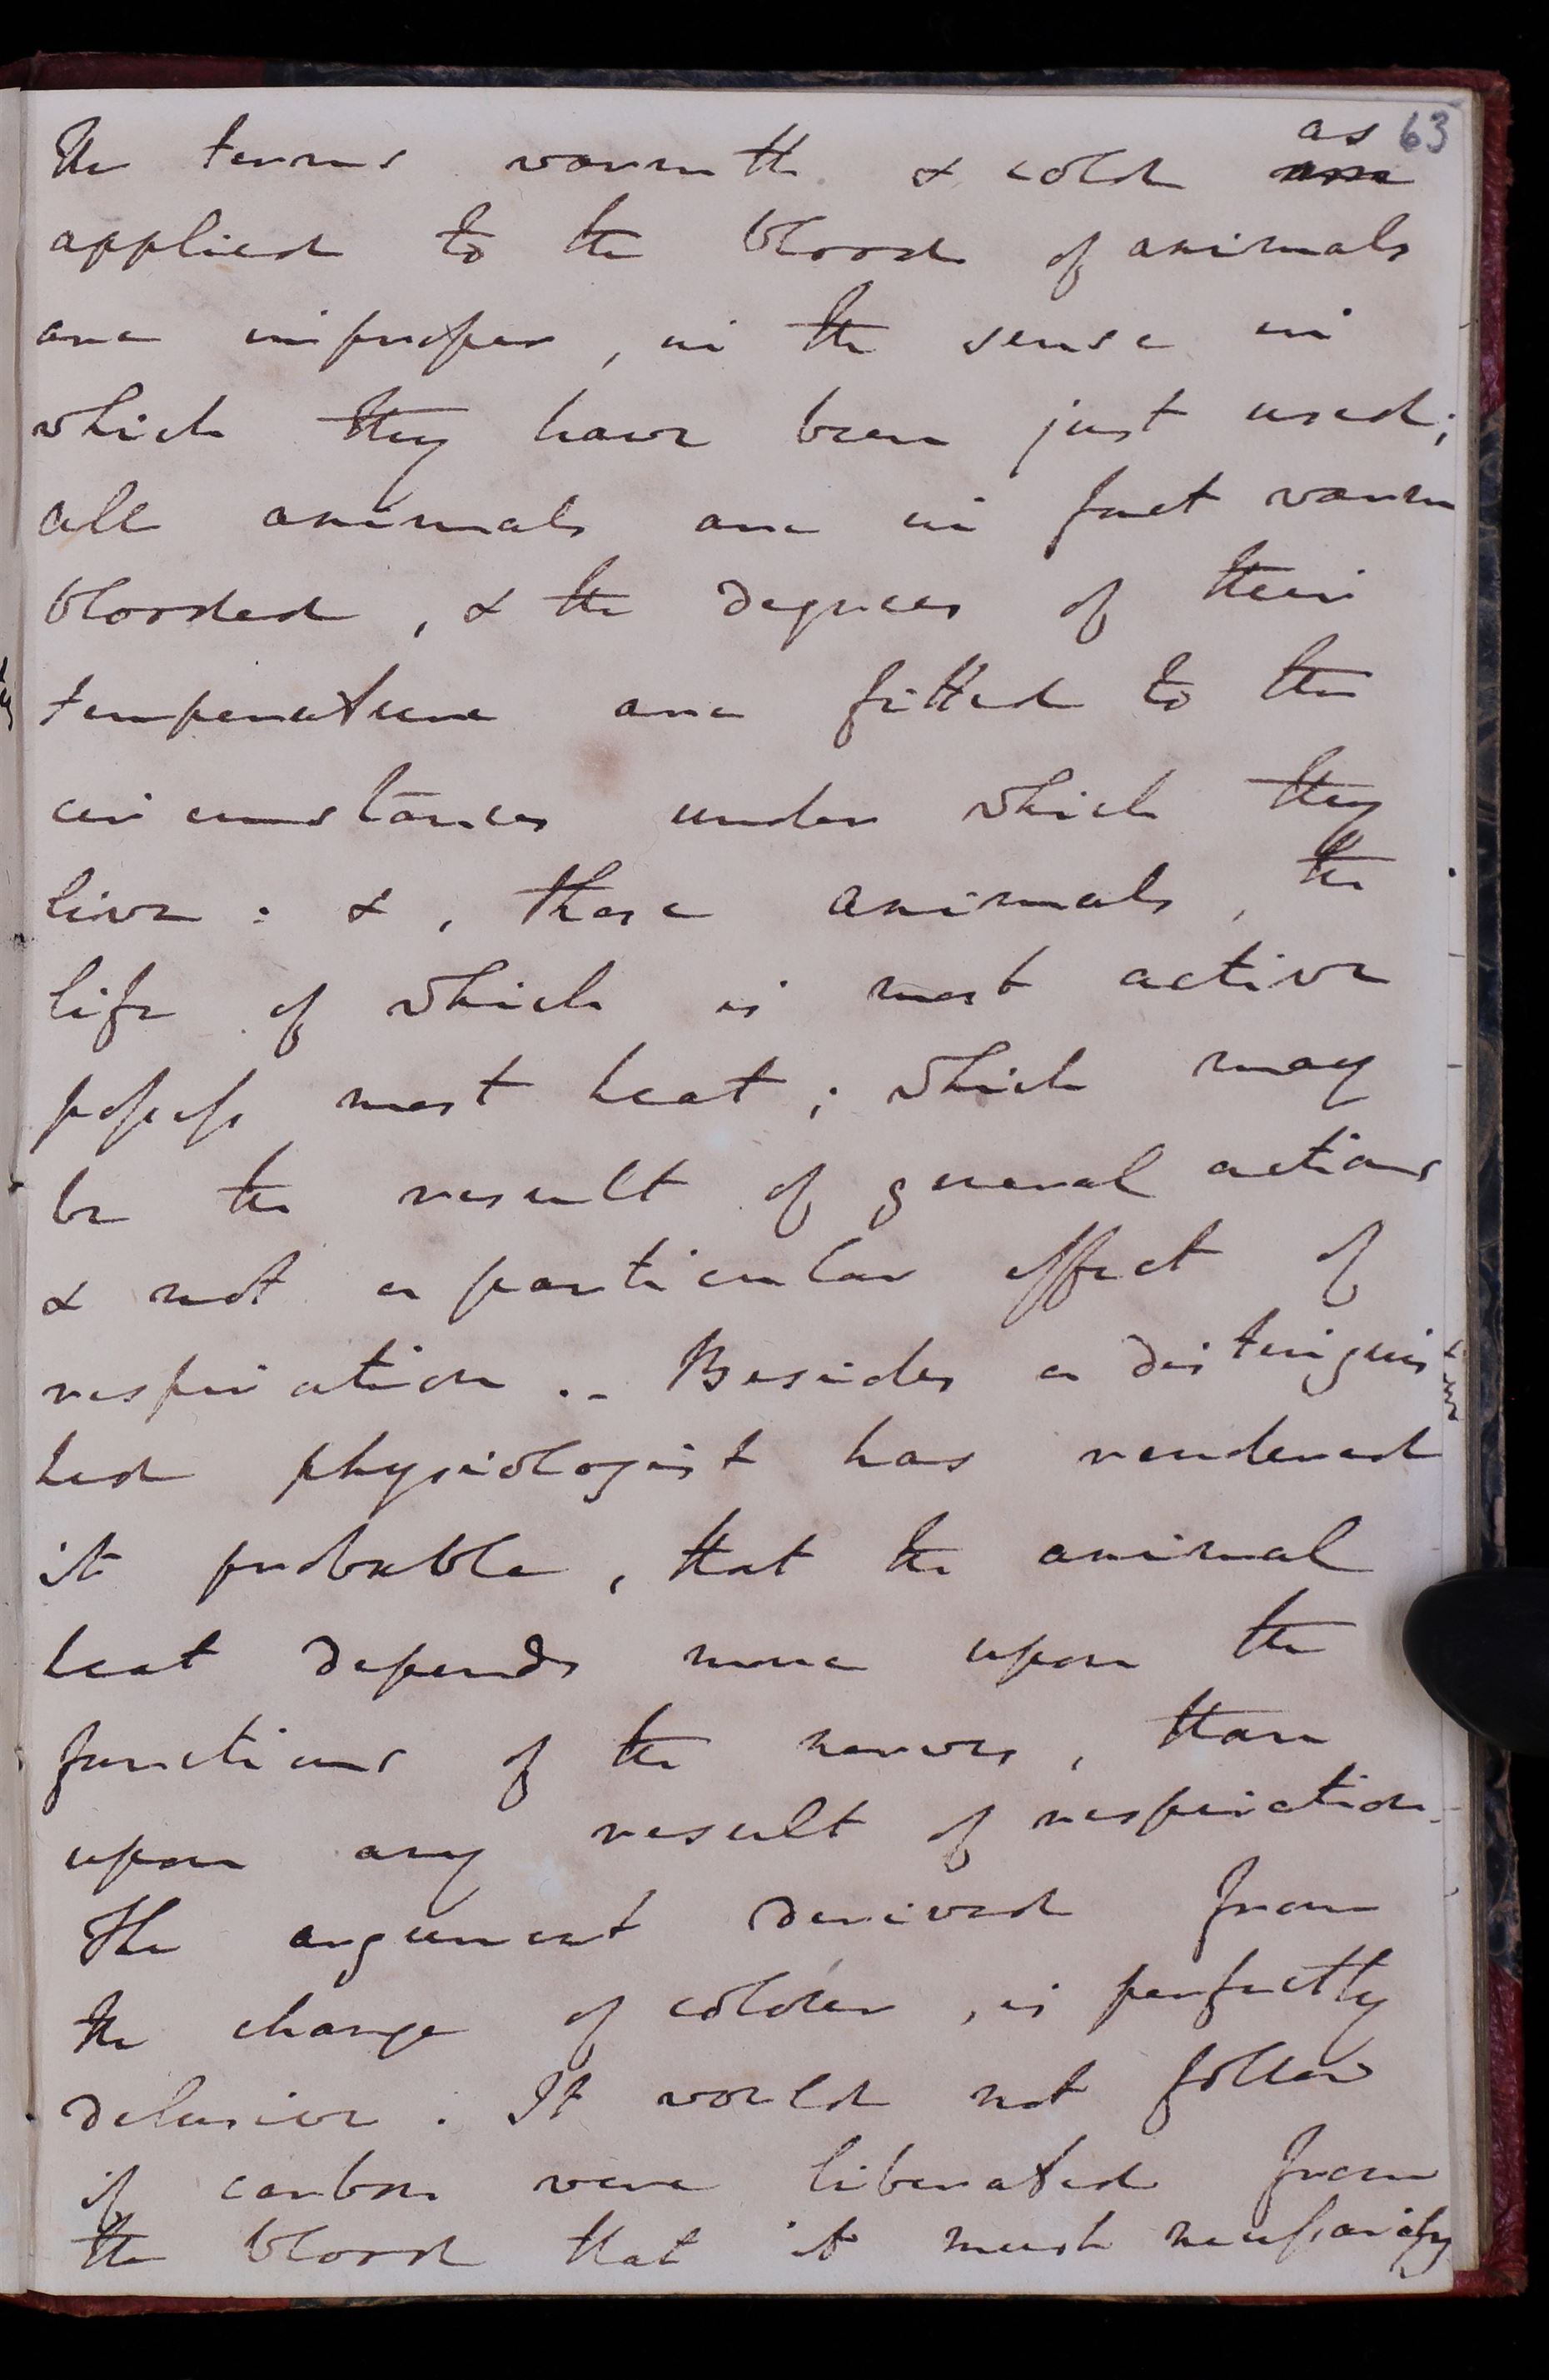 as 63
The terms warmth & cold are
applied to the blood of animals
are improper, in the sense in
which they have been just used;
all animals are in fact warm
blooded, & the degrees of their
temperature are fitted to the
circumstances under which they
live: &, those animals, the
life of which is most active
possess most heat; which may
be the result of general actions
& not a particular effect of
respiration.- Besides a distinguis
hed physiologist has rendered
it probable, that the animal
heat depends more upon the
functions of the nerves, than
upon any result of respiration.
The argument derived from
the change of colour, is perfectly
delusive. It would not follow
if carbon were liberated from
the blood that it must necessarily